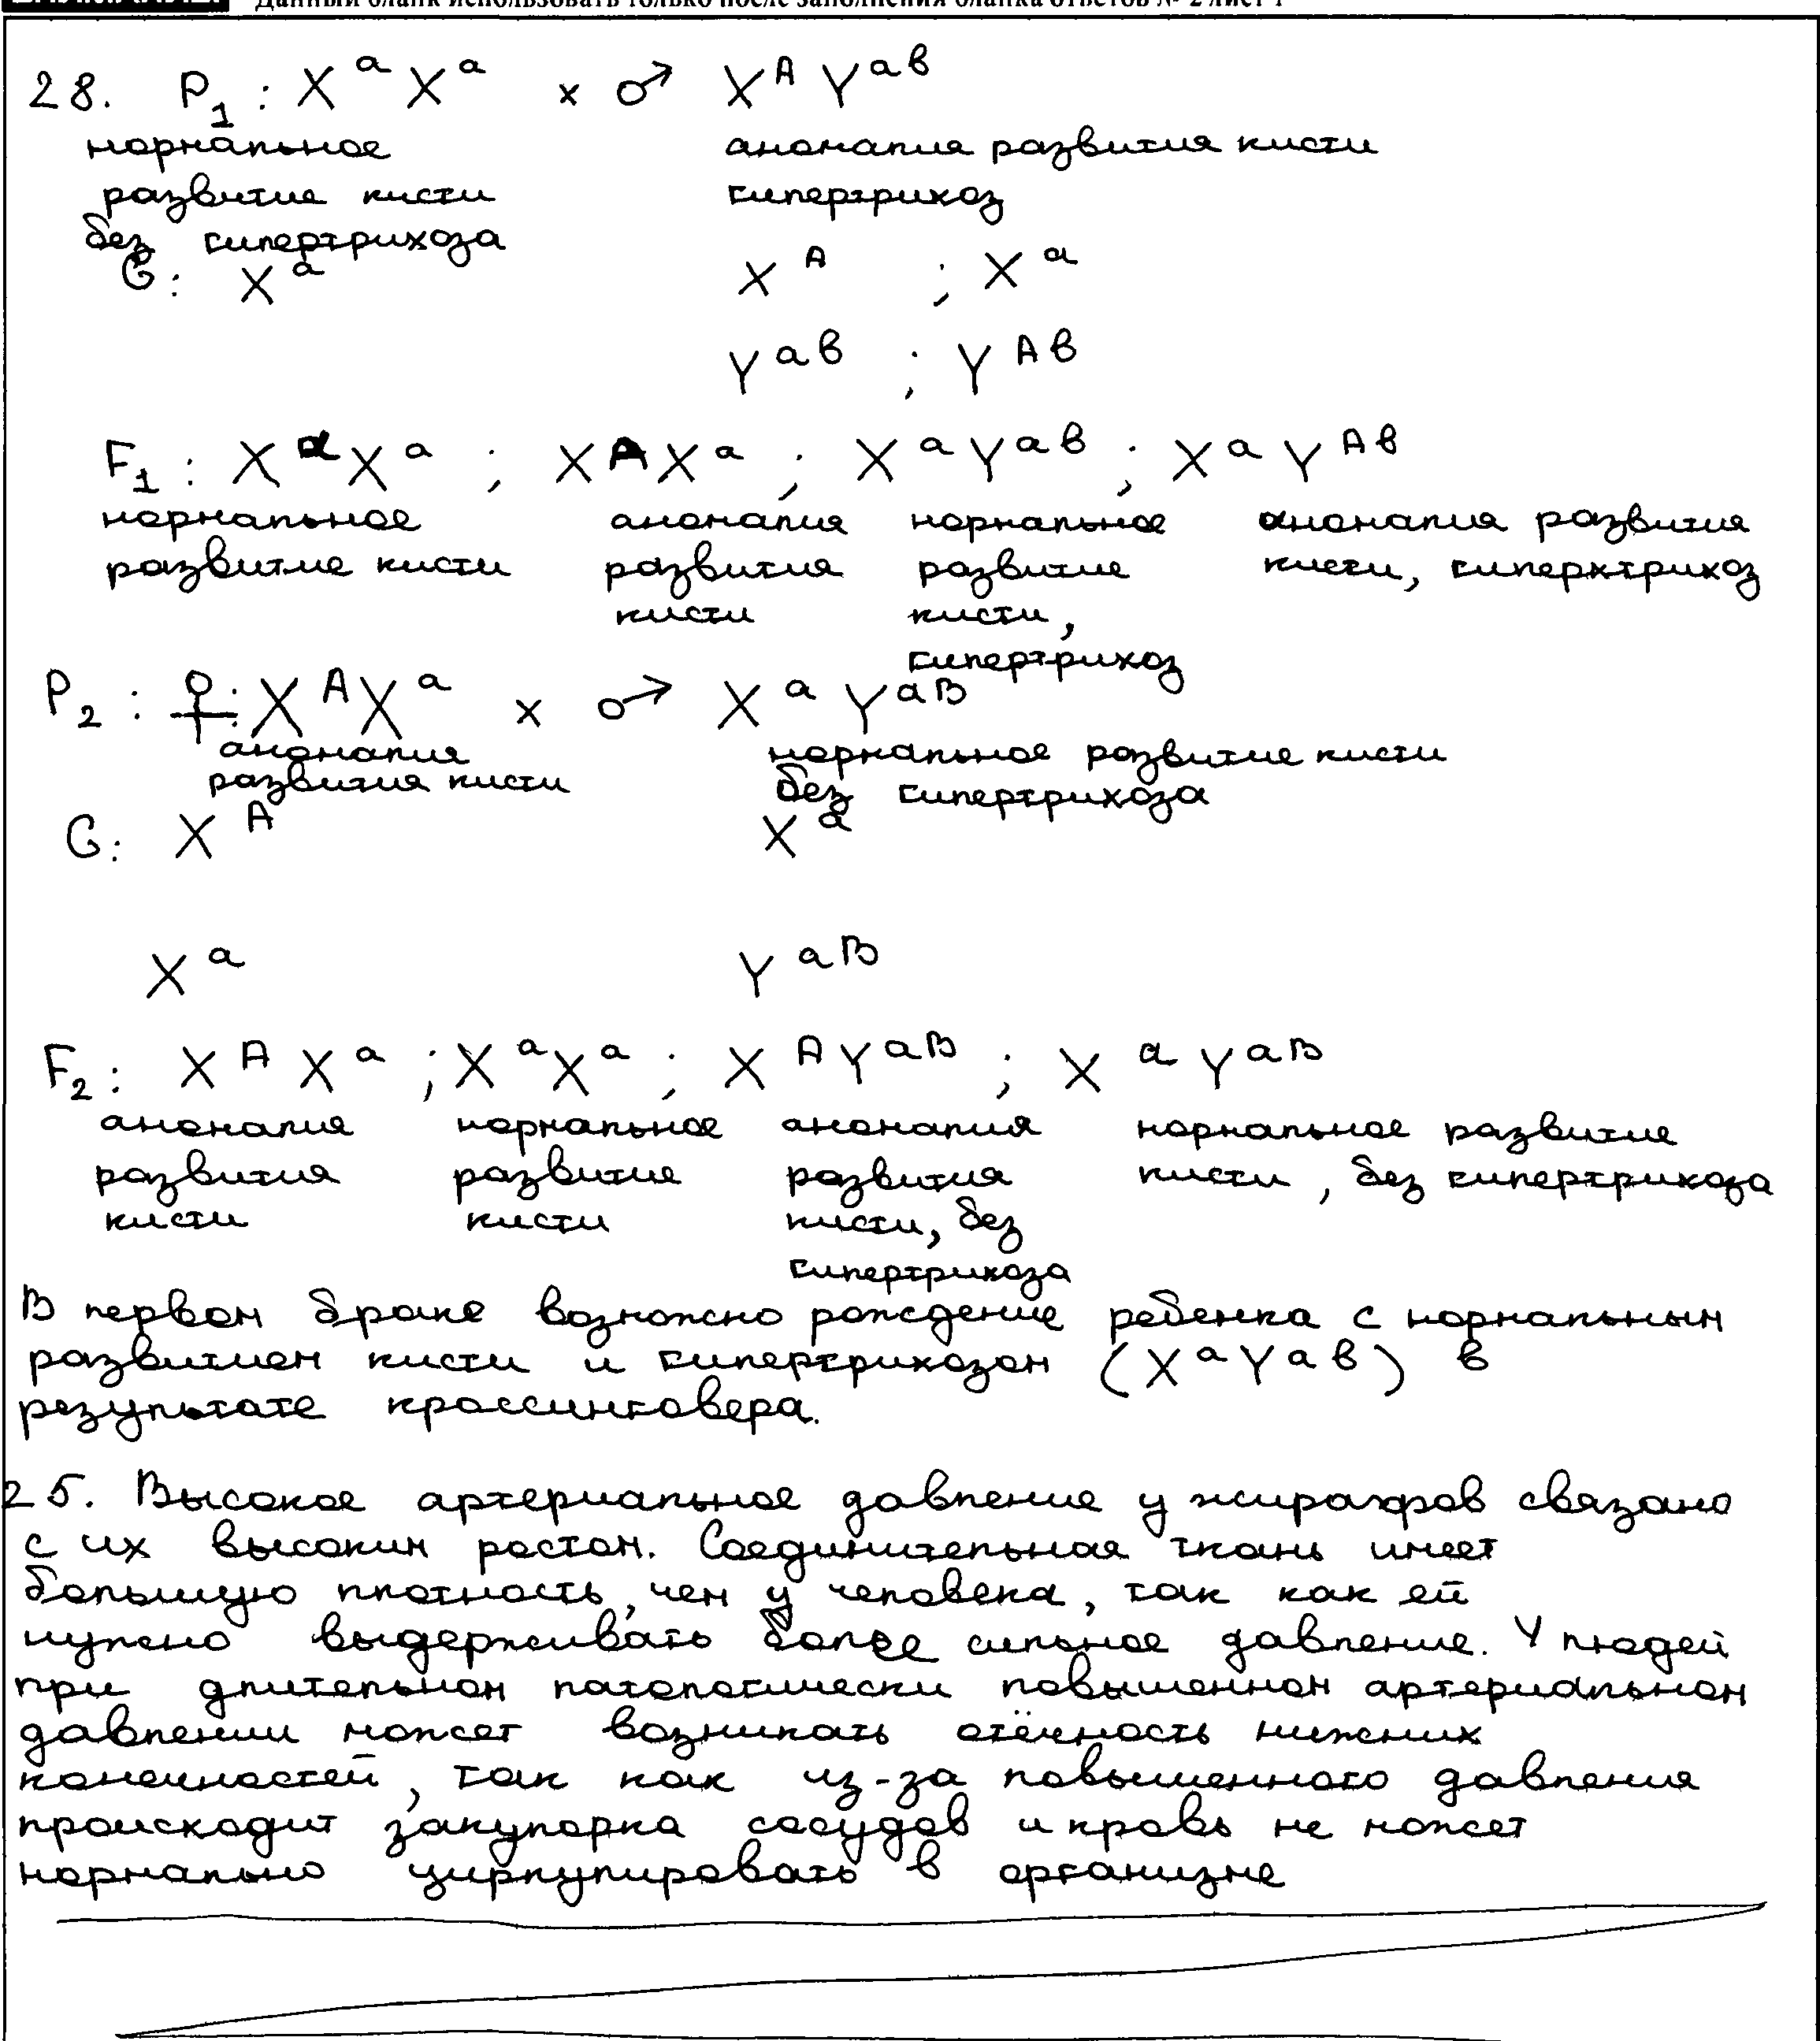 Данный бланк использовать только после заполнения бланка ответов № 2 лист 1
28. P₁ : Xᵃ Xᵃ × ♂ Xᴬ Yᵃᵇ
нормальное аномалия развития кисти
развитие кисти гипертрихоз
без гипертрихоза
G: Xᵃ Xᴬ ; Xᵃ
Yᵃᵇ ; Yᴬᵇ
F₁ : XᵃXᵃ ; XᴬXᵃ ; XᵃYᵃᵇ ; XᵃYᴬᵇ
нормальное аномалия нормальное аномалия развития
развитие кисти развития развитие кисти, гиперхтрихоз
кисти кисти,
гипертрихоз
P₂ : ♀: XᴬXᵃ × ♂ Xᵃ Yᵃᴮ
аномалия нормальное развитие кисти
развития кисти без гипертрихоза
G: Xᴬ Xᵃ
Xᵃ Yᵃᴮ
F₂ : XᴬXᵃ ; XᵃXᵃ ; XᴬYᵃᴮ ; XᵃYᵃᴮ
аномалия нормальное аномалия нормальное развитие
развития развитие развития кисти, без гипертрихоза
кисти кисти кисти, без
гипертрихоза
В первом браке возможно рождение ребенка с нормальным
развитием кисти и гипертрихозом (XᵃYᵃᵇ) в
результате кроссинговера.
25. Высокое артериальное давление у жирафов связано
с их высоким ростом. Соединительная ткань имеет
большую плотность, чем у человека, так как ей
нужно выдерживать более сильное давление. У людей
при длительном патологически повышенном артериальном
давлении может возникать отёчность нижних
конечностей, так как из-за повышенного давления
происходит закупорка сосудов и кровь не может
нормально циркулировать в организме